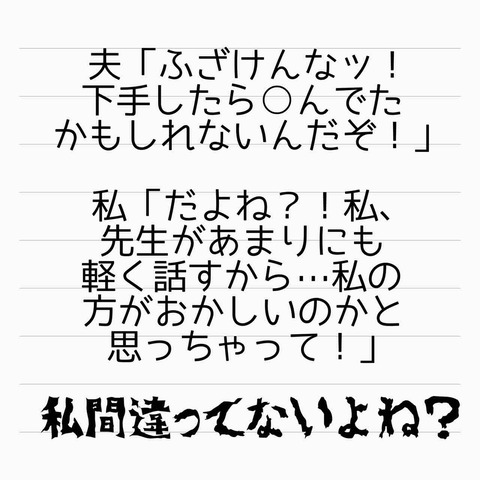 夫「ふざけんなッ！
下手したら○んでた
かもしれないんだぞ！」
私「だよね？！私、
先生があまりにも
軽く話すから…私の
方がおかしいのかと
思っちゃって！」
私間違ってないよね？